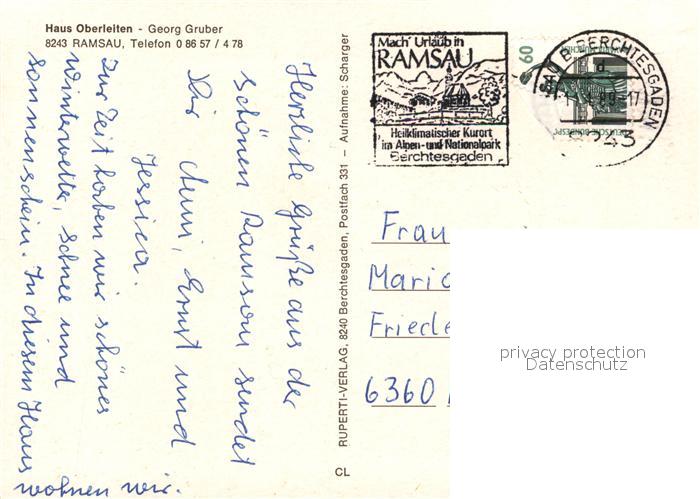 Haus Oberleiten - Georg Gruber
8243 RAMSAU, Telefon 0 86 57 / 4 78
Herzliche Grüße aus der
schönen Ramsau sendet
Dir
Ernst und
Jessica.
Zur Zeit haben wir schönes
Winterwetter, Schnee und
Sonnenschein. In diesem Haus
wohnen wir.
RUPERTI-VERLAG, 8240 Berchtesgaden, Postfach 331 – Aufnahme: Scharger
CL
Mach' Urlaub in
RAMSAU
Heilklimatischer Kurort
im Alpen- und Nationalpark
Berchtesgaden
60
DEUTSCHE BUNDESPOST
BERCHTESGADEN
d
8243
Frau
Maria
Friede
6360
privacy protection
Datenschutz